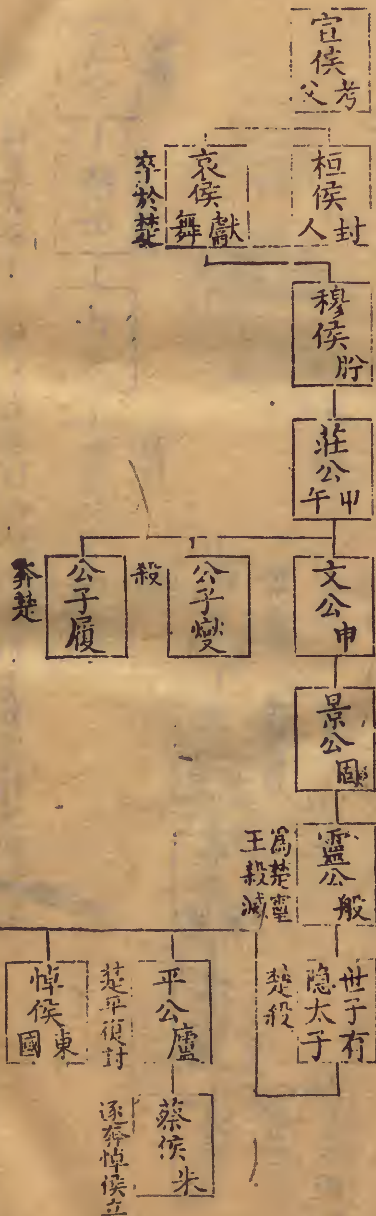 宣侯考父
桓侯封人
哀侯獻舞
卒於楚
穆侯肸
莊公甲午
文公申
公子燮
殺
公子履
奔楚
景公固
靈公般
爲楚靈王殺滅
世子有隐太子
楚殺
平公廬
楚平復封
悼侯東國
蔡侯朱
逐奔悼侯立